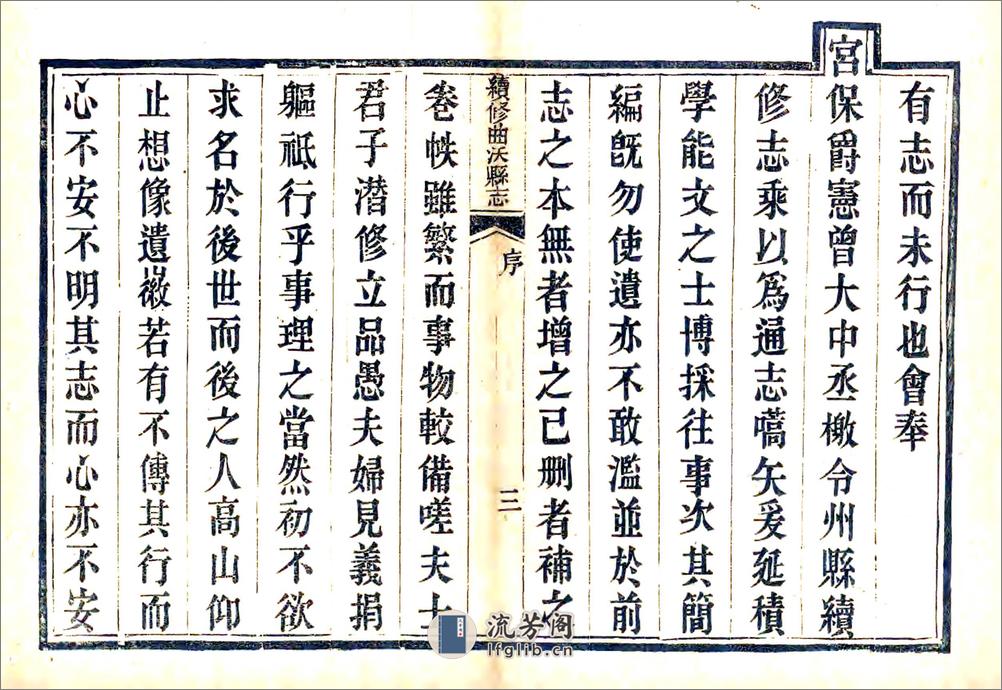 有志而未行也會奉
宮保爵憲曾大中丞檄令州縣續
修志乘以爲通志嚆矢爰延積
學能文之士博採往事次其簡
編旣勿使遺亦不敢濫並於前
志之本無者增之已刪者補之
續修曲沃縣志
序
三
卷帙雖繁而事物較備嗟夫士
君子潛修立品愚夫婦見義捐
軀祇行乎事理之當然初不欲
求名於後世而後之人高山仰
止想像遺徽若有不傳其行而
心不安不明其志而心亦不安
流芳阁
lfglib.cn